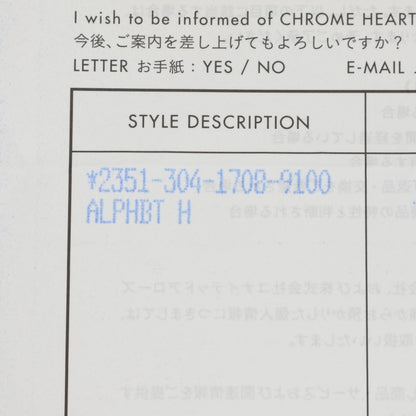 I wish to be informed of CHROME HEART
今後、ご案内を差し上げてもよろしいですか？
LETTER お手紙：YES / NO E-MAIL
STYLE DESCRIPTION
*2351-304-1708-9100
ALPHBT H